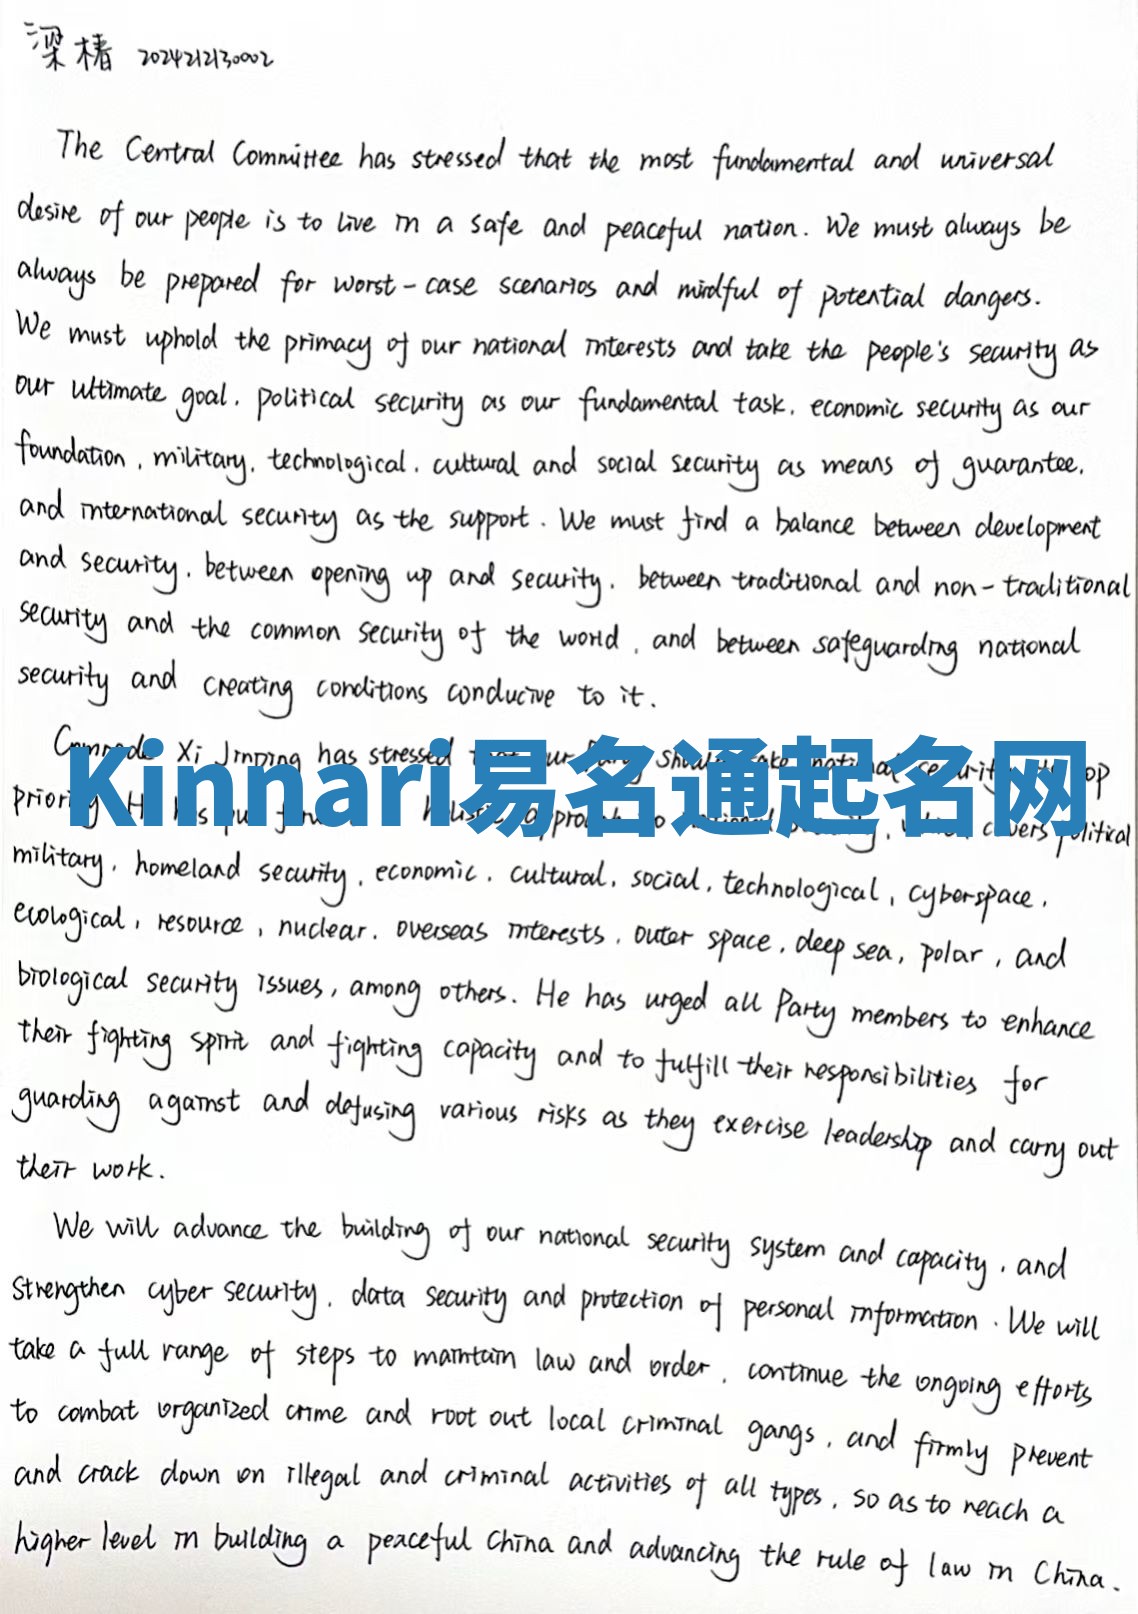 梁椿 2024212130002
The Central Committee has stressed that the most fundamental and universal
desire of our people is to live in a safe and peaceful nation. We must always be
always be prepared for worst-case scenarios and mindful of potential dangers.
We must uphold the primacy of our national interests and take the people's security as
our ultimate goal, political security as our fundamental task, economic security as our
foundation, military, technological, cultural and social security as means of guarantee,
and international security as the support. We must find a balance between development
and security, between opening up and security, between traditional and non-traditional
security and the common security of the world, and between safeguarding national
security and creating conditions conducive to it.
Xi Jinping has stressed
Kinnari易名通起名网
political
military, homeland security, economic, cultural, social, technological, cyberspace,
ecological, resource, nuclear, overseas interests, outer space, deep sea, polar, and
biological security issues, among others. He has urged all Party members to enhance
their fighting spirit and fighting capacity and to fulfill their responsibilities for
guarding against and defusing various risks as they exercise leadership and carry out
their work.
We will advance the building of our national security system and capacity, and
strengthen cyber security, data security and protection of personal information. We will
take a full range of steps to maintain law and order, continue the ongoing efforts
to combat organized crime and root out local criminal gangs, and firmly prevent
and crack down on illegal and criminal activities of all types, so as to reach a
higher level in building a peaceful China and advancing the rule of law in China.